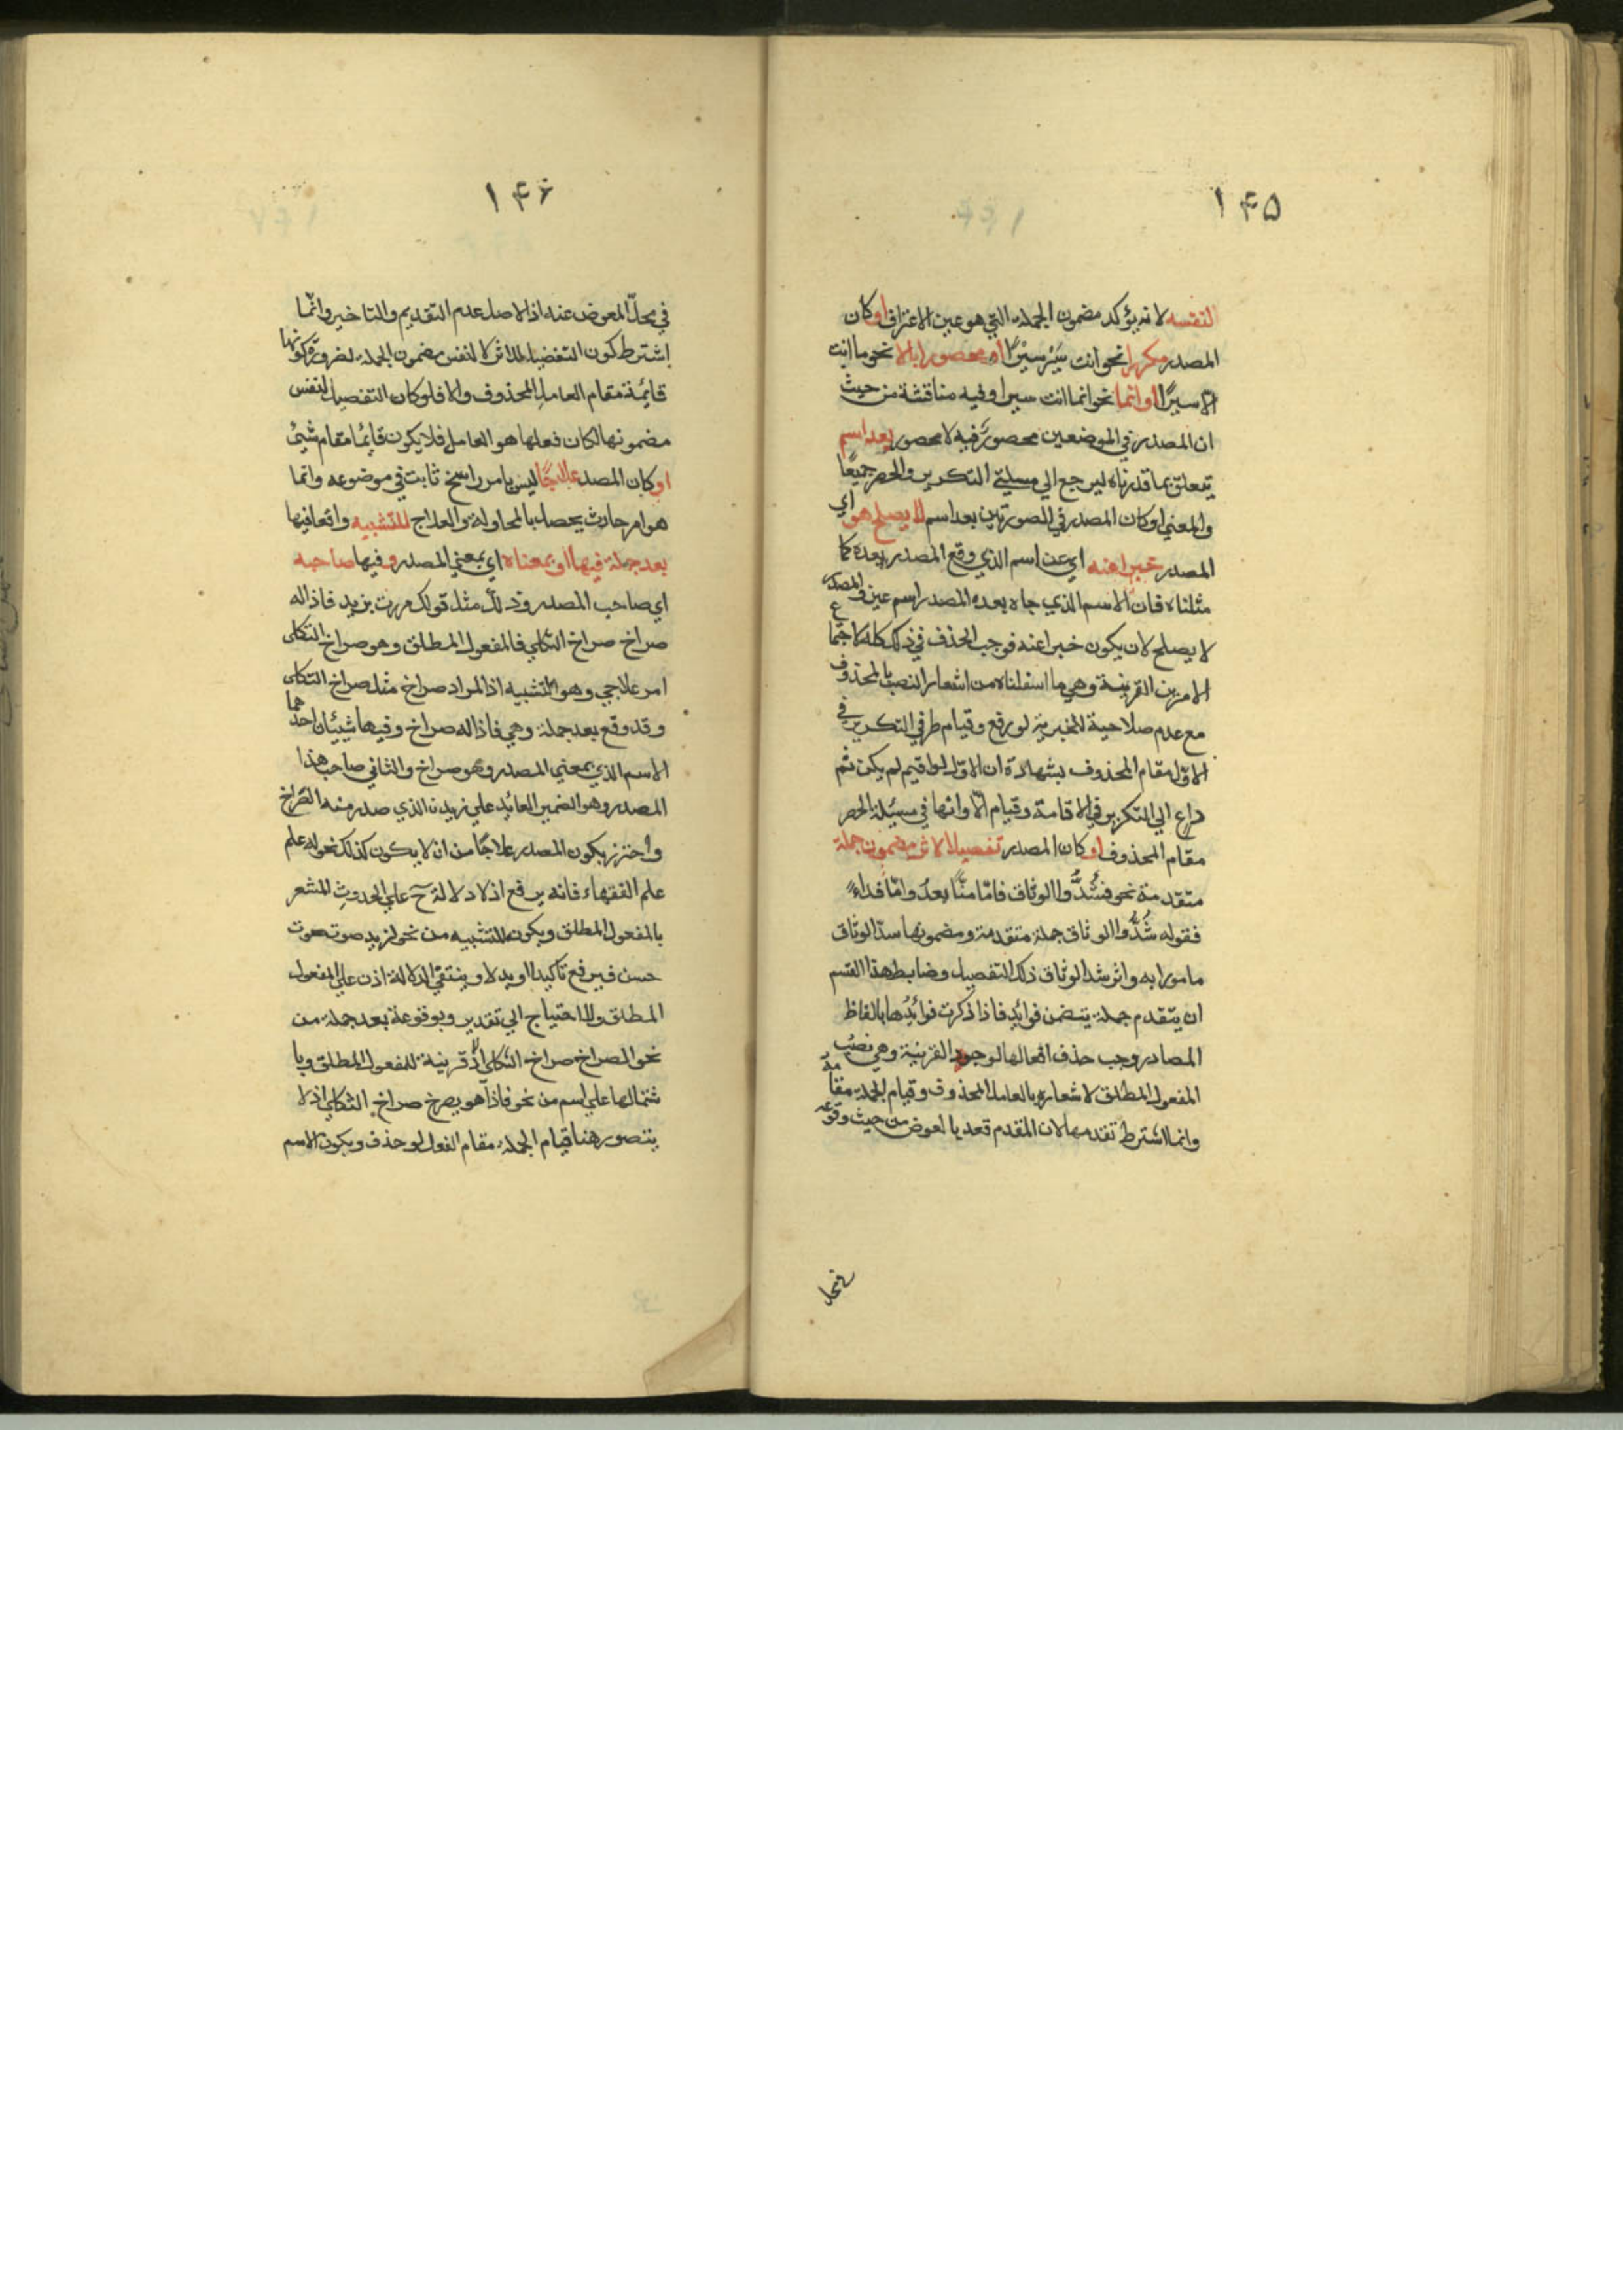 ١۴۵
لنفسه لانه يؤكد مضمون الجملة التي هو عين الاعتراف او كان
المصدر مكررا نحو انت سَيْر سيْرًا او محصورا بالا نحو ما انت
الا سيرًا او انما نحو انما انت سيرا وفيه مناقشة من حيث
ان المصدر في الموضعين محصورٌ فيه لا محصور بعد اسم
يتعلق بما قدرناه ليرجع الي مسيلتي التكرير والحصر جميعًا
والمعني او كان المصدر في الصورتين بعد اسم لا يصلح هو اي
المصدر خبرا عنه اي عن اسم الذي وقع المصدر بعده كما
مثلناه فان الاسم الذي جاء بعده المصدر اسم عين والمصدر
لا يصلح لان يكون خبرا عنه فوجب الحذف في ذلك كله لاجتماع
الامرين القرينة وهي ما اسفلناه من اشعار النصب بالمحذوف
مع عدم صلاحية الخبرية لو رفع وقيام طرفي التكرير في
الاوّل مقام المحذوف بشهادة ان الاوّل لو اقيم لم يكن ثم
داع الي التكرير في الاقامة وقيام الّا وانما في مسئلة الحصر
مقام المحذوف او كان المصدر تفصيلا لاثر مضمون جملة
متقدمة نحو فشُدُّوا الوثاق فامّا منًّا بعدُ وامّا فداءً
فقوله شُدُّوا الوثاق جملة متقدمة ومضمونها شدّ الوثاق
مامورا به واثر شد الوثاق ذلك التفصيل وضابط هذا القسم
ان يتقدم جملة يتضمن فوائد فاذا ذكرت فوائدُها بالفاظ
المصادر وجب حذف افعالها لوجود القرينة وهي نصبُ
المفعول المطلق لاشعاره بالعامل المحذوف وقيام الجملة مقامه
وانما اشترط تقدمها لان المقدم قعد بالعوض من حيث وقوعه
في محل
١۴۶
في محلّ المعوض عنه اذ الاصل عدم التقديم والتاخير وانّما
اشترط كون التفضيل للاثر لا لنفس مضمون الجملة لضرورة كونها
قايمة مقام العامل المحذوف والا فلو كان التفصيل لنفس
مضمونها لكان فعلها هو العامل فلا يكون قايمًا مقام شئ
او كان المصدر علاجًا ليس بامر راسخ ثابت في موضوعه وانما
هو امر حادث يحصل بالمحاولة والعلاج للتشبيه واقعا فيها
بعد جملة فيها او بمعناه اي بمعني المصدر وفيها صاحبه
اي صاحب المصدر وذلك مثل قولك مررت بزيد فاذا له
صراخ صراخ الثكلي فالمفعول المطلق وهو صراخ الثكلى
امر علاجي وهو للتشبيه اذ المراد صراخ مثل صراخ الثكلى
وقد وقع بعد جملة وهي فاذا له صراخ وفيها شيئان احدهما
الاسم الذي بمعني المصدر وهو صراخ والثاني صاحب هذا
المصدر وهو الضمير العائد علي زيدن الذي صدر منه الصّراخ
واحترز بكون المصدر علاجًا من ان لا يكون كذلك نحو له علم
علم الفقهاء فانه يرفع اذ لا دلالة ح علي الحدوثِ المشعر
بالمفعول المطلق وبكونه للتشبيه من نحو لزيد صوت صوت
حسن فيرفع تاكيدا او بدلا وينتفي الدلالة اذن علي المفعول
المطلق والاحتياج الي تقدير وبوقوعه بعد جملة من
نحو الصراخ صراخ الثكلي اذ لا قرينة للمفعول المطلق وبا
شتمالها علي اسم من نحو فاذا هو يصرخ صراخ الثكلي اذ لا
يتصور هنا قيام الجملة مقام الفعل لو حذف وبكون الاسم